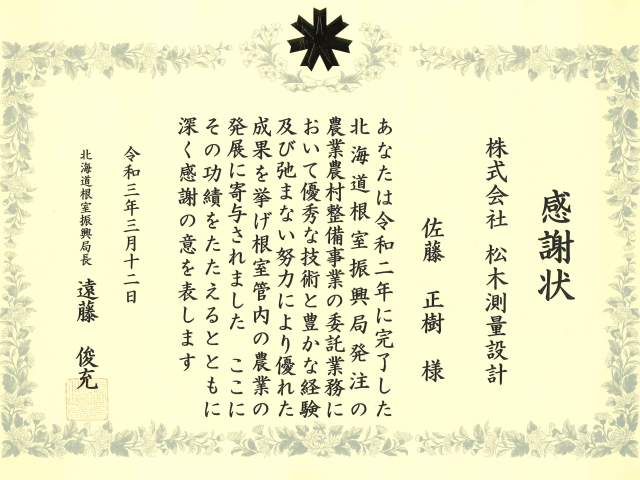 感謝状
株式会社 松木測量設計
佐藤 正樹 様
あなたは令和二年に完了した
北海道根室振興局発注の
農業農村整備事業の委託業務に
おいて優秀な技術と豊かな経験
及び弛まない努力により優れた
成果を挙げ根室管内の農業の
発展に寄与されました ここに
その功績をたたえるとともに
深く感謝の意を表します
令和三年三月十二日
北海道根室振興局長 遠藤 俊充